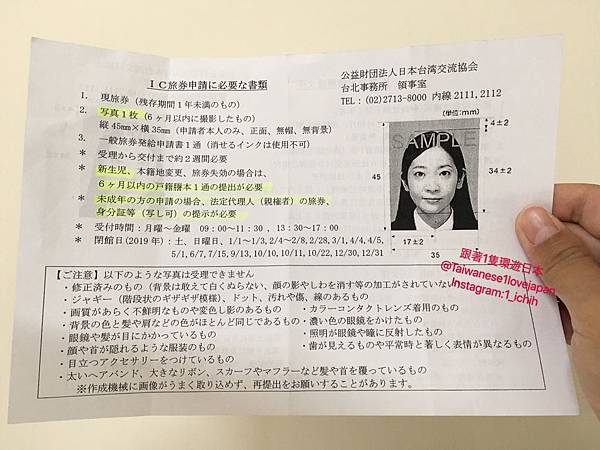 IC旅券申請に必要な書類
公益財団法人日本台湾交流協会
台北事務所 領事室
TEL:(02)2713-8000 内線 2111, 2112
1. 現旅券(残存期間1年未満のもの)
2. 写真1枚(6ヶ月以内に撮影したもの)
縦 45mm×横 35mm(申請者本人のみ、正面、無帽、無背景)
3. 一般旅券発給申請書1通(消せるインクは使用不可)
* 受理から交付まで約2週間必要
* 新生児、本籍地変更、旅券失効の場合は、
6ヶ月以内の戸籍謄本1通の提出が必要
* 未成年の方の申請の場合、法定代理人(親権者)の旅券、
身分証等(写し可)の提示が必要
* 受付時間:月曜~金曜 09:00~11:30 , 13:30~17:00
* 閉館日(2019年):土、日曜日、1/1~1/3, 2/4~2/8, 2/28, 3/1, 4/4, 4/5,
5/1, 6/7, 7/15, 9/13, 10/10, 10/11, 10/22, 12/30, 12/31
(単位:mm)
SAMPLE
4±2
45
34±2
17±2
35
跟著1隻環遊日本
@Taiwanese1lovejapan
Instagram:1_ichih
【ご注意】以下のような写真は受理できません
・修正済みのもの(背景は敢えて白くぬらない、顔の影やしわを消す等の加工がされていない
・ジャギー(階段状のギザギザ模様)、ドット、汚れや傷、線のあるもの
・画質があらく不鮮明なものや変色し影のあるもの
・カラーコンタクトレンズ着用のもの
・背景の色と髪や肩などの色がほとんど同じであるもの
・濃い色の眼鏡をかけたもの
・眼鏡や髪が目にかかっているもの
・照明が眼鏡や瞳に反射したもの
・顔や首が隠れるような服装のもの
・歯が見えるものや平常時と著しく表情が異なるもの
・目立つアクセサリーをつけているもの
・太いヘアバンド、大きなリボン、スカーフやマフラーなど髪や首を覆っているもの
※作成機械に画像がうまく取り込めず、再提出をお願いすることがあります。